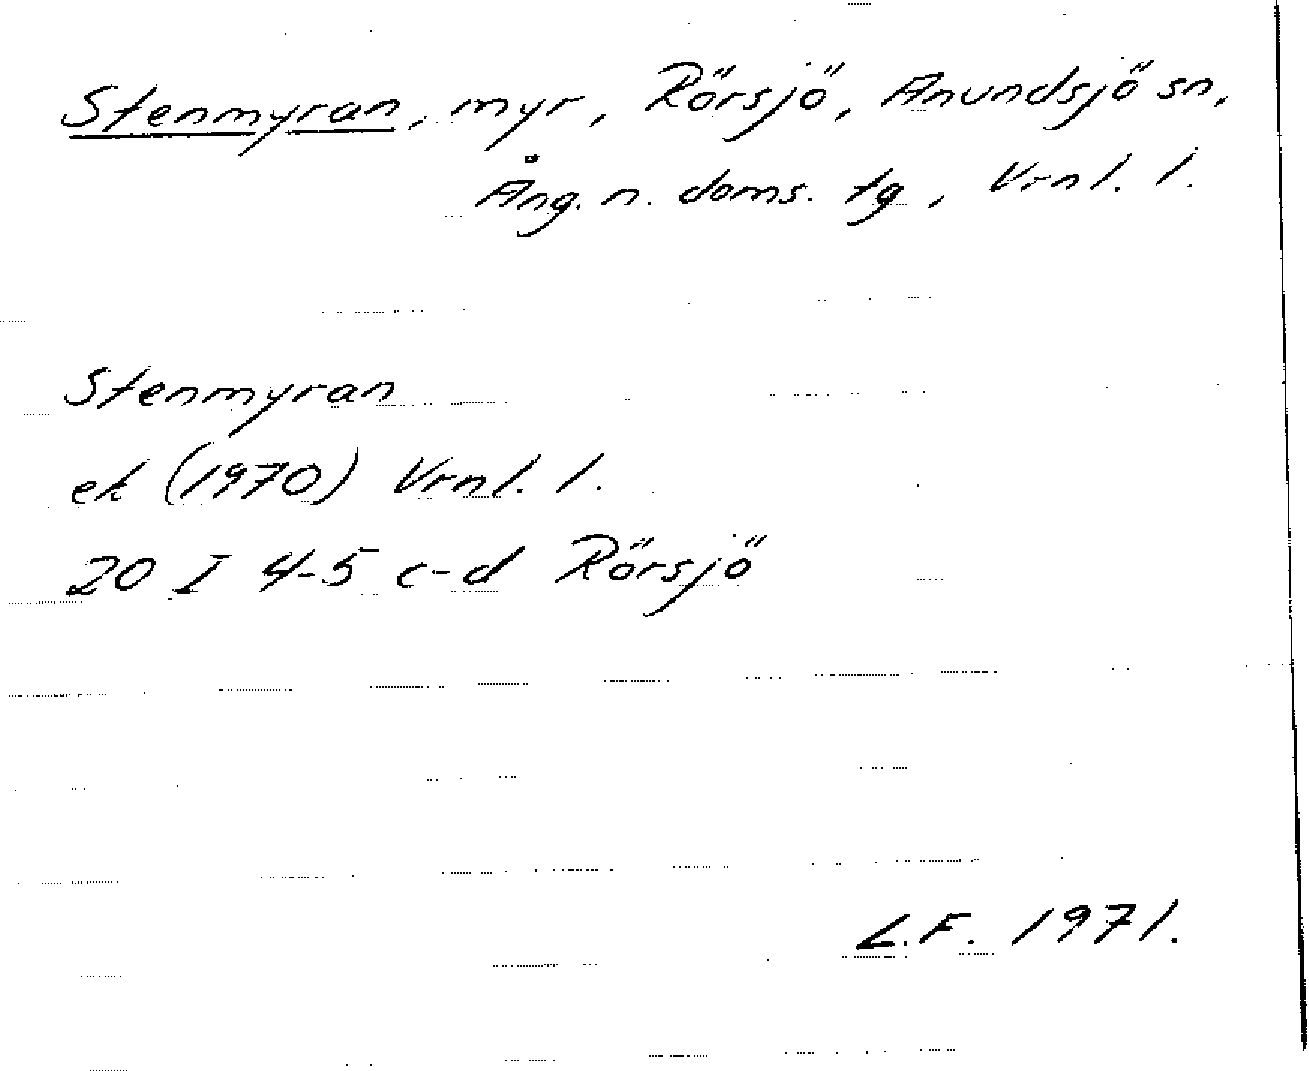 Stenmyran, myr, Rörsjö, Anundsjö sn,
Ång. n. doms. tg, Vrnl. l.
Stenmyran
ek (1970) Vrnl. l.
20 I 4-5 c-d Rörsjö
L.F. 1971.